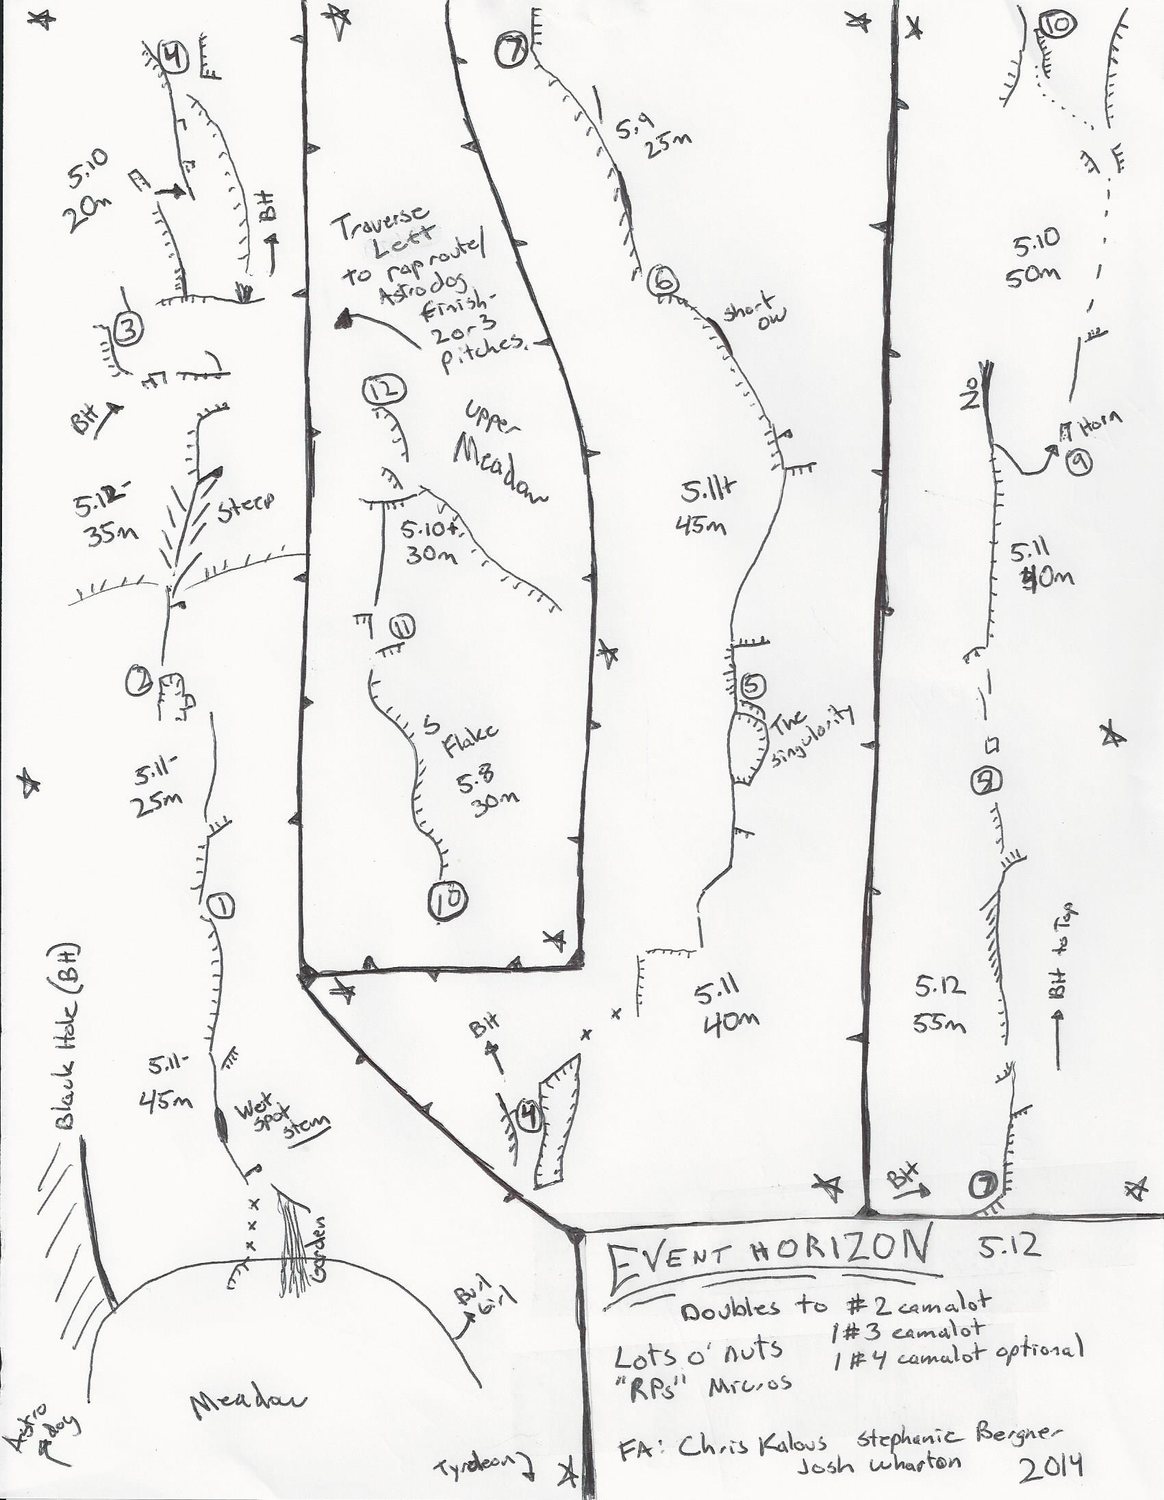 4
5.10
20m
BH
3
BH
5.12-
35m
Steep
2
5.11-
25m
1
Black Hole (BH)
5.11-
45m
Wet
spot
stem
Garden
Burl
Girl
Meadow
Astro
dog
Tyrolean
Traverse
Left
to rap route/
Astrodog
finish-
2 or 3
pitches.
12
Upper
Meadow
5.10+
30m
11
Flake
5.8
30m
10
7
5.9
25m
6
short
ow
5.11+
45m
5
The
Singularity
5.11
40m
BH
4
10
5.10
50m
No
Horn
9
5.11
40m
8
BH to Top
5.12
55m
BH
7
EVENT HORIZON 5.12
Doubles to #2 camalot
1 #3 camalot
Lots o' nuts
1 #4 camalot optional
"RPs" Micros
FA: Chris Kalous Stephanie Bergner
Josh Wharton
2014